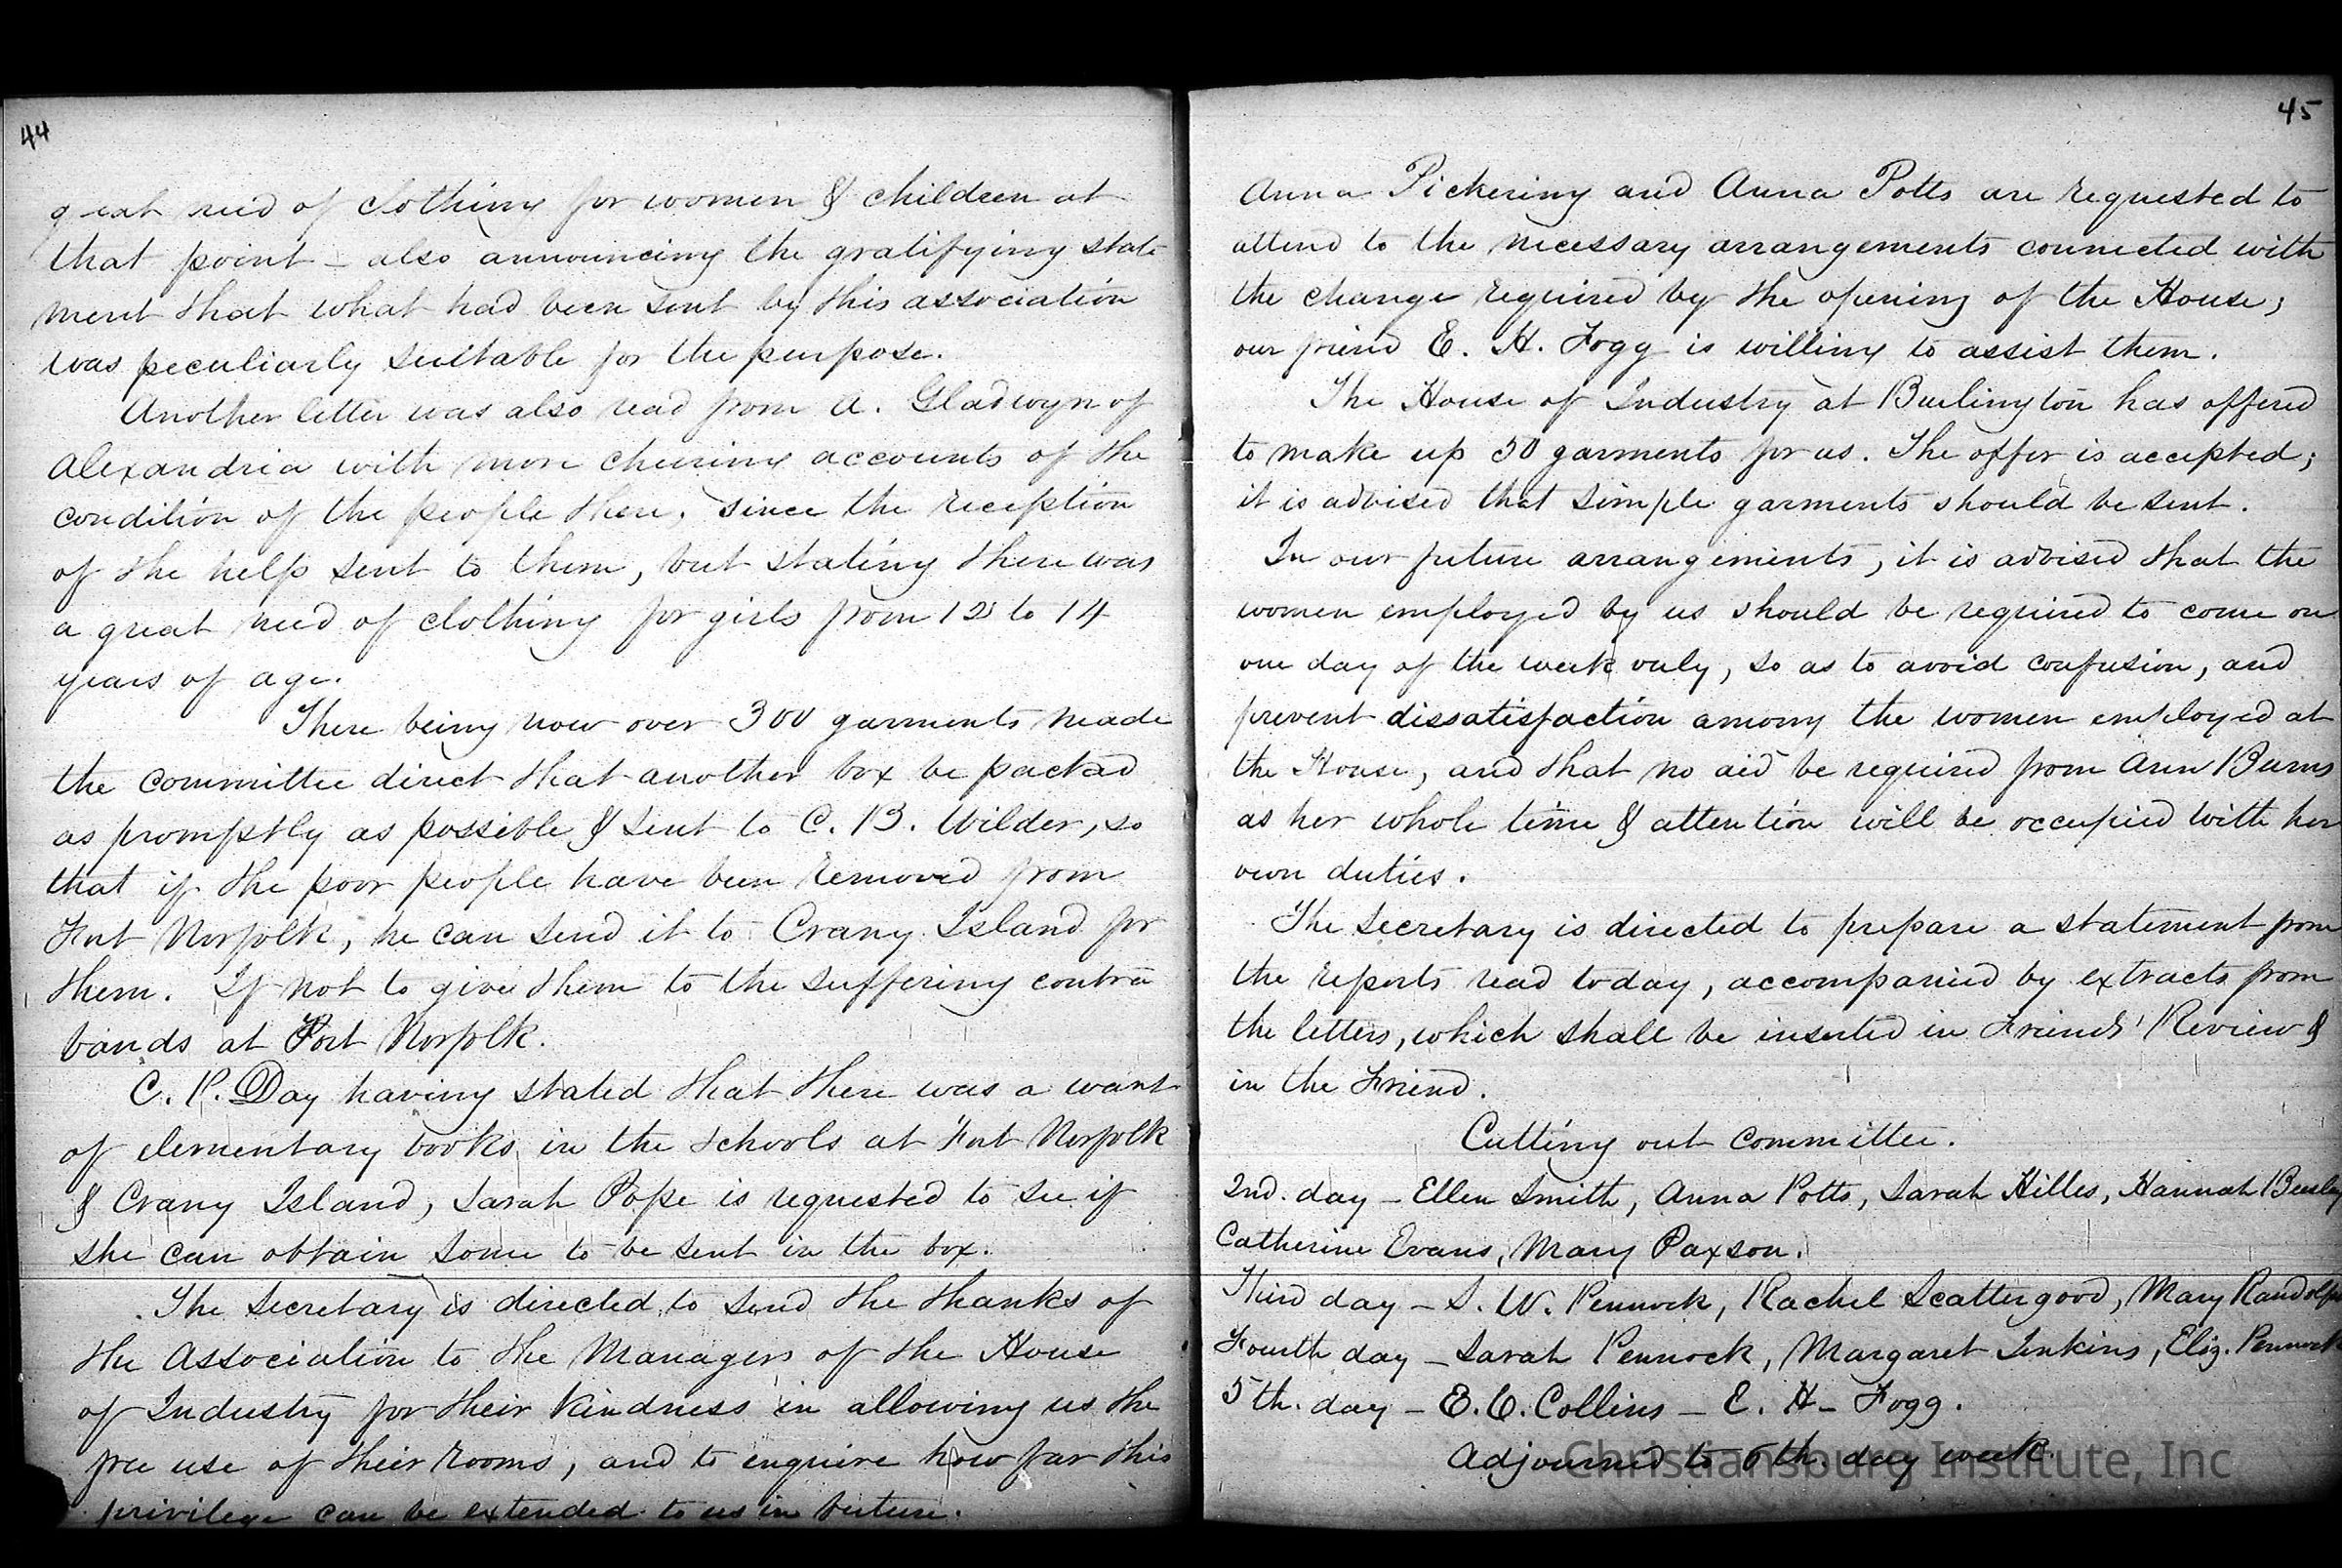 44
great need of clothing for women & children at
that point – also announcing the gratifying state
ment that what had been sent by this association
was peculiarly suitable for the purpose.
Another letter was also read from A. Gladwyn of
Alexandria with more cheering accounts of the
condition of the people there, since the reception
of the help sent to them, but stating there was
a great need of clothing for girls from 12 to 14
years of age.
There being now over 300 garments made
the committee direct that another box be packed
as promptly as possible & sent to C. B. Wilder, so
that if the poor people have been removed from
Fort Norfolk, he can send it to Crany Island for
them. If not to give them to the suffering contra
bands at Fort Norfolk.
C. P. Day having stated that there was a want
of elementary books in the schools at Fort Norfolk
& Crany Island, Sarah Pope is requested to see if
she can obtain some to be sent in the box.
The Secretary is directed to send the thanks of
the Association to the Managers of the House
of Industry for their kindness in allowing us the
free use of their rooms, and to enquire how far this
privilege can be extended to us in future.
45
Anna Pickering and Anna Potts are requested to
attend to the necessary arrangements connected with
the change required by the opening of the House;
our friend E. H. Fogg is willing to assist them.
The House of Industry at Burlington has offered
to make up 50 garments for us. The offer is accepted;
it is advised that simple garments should be sent.
In our future arrangements, it is advised that the
women employed by us should be required to come on
one day of the week only, so as to avoid confusion, and
prevent dissatisfaction among the women employed at
the House, and that no aid be required from Ann Burns
as her whole time & attention will be occupied with her
own duties.
The Secretary is directed to prepare a statement from
the reports read today, accompanied by extracts from
the letters, which shall be inserted in Friends' Review &
in the Friend.
Cutting out committee.
2nd. day – Ellen Smith, Anna Potts, Sarah Hilles, Hannah
Catherine Evans, Mary Paxson.
Third day – S. W. Pennock, Rachel Scattergood, Mary Randolph
Fourth day – Sarah Pennock, Margaret Jenkins, Eliz. Pennock
5th. day – E. C. Collins – E. H. Fogg.
Adjourned to 6th. day week.
Christiansburg Institute, Inc